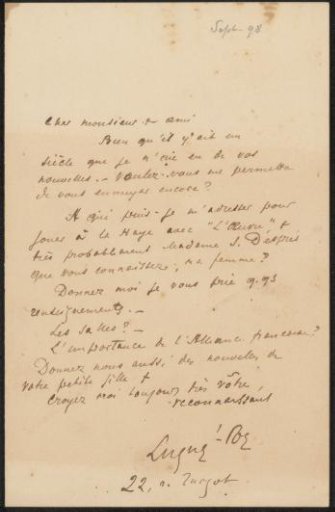 Sept. 98
Cher monsieur & ami
Bien qu'il y ait un
siècle que je n'aie eu de vos
nouvelles. - Voulez-vous me permettre
de vous ennuyer encore?
A qui puis-je m'adresser pour
jouer à la Haye avec "L'Œuvre" &
très probablement Madame S. Després
que vous connaissez, ma femme?
Donnez moi je vous prie q.qs
renseignements. -
Les salles? -
L'importance de l'Alliance française?
Donnez nous aussi des nouvelles de
votre petite fille &
Croyez moi toujours très vôtre,
reconnaissant
Lugné-Poe
22, r. Turgot